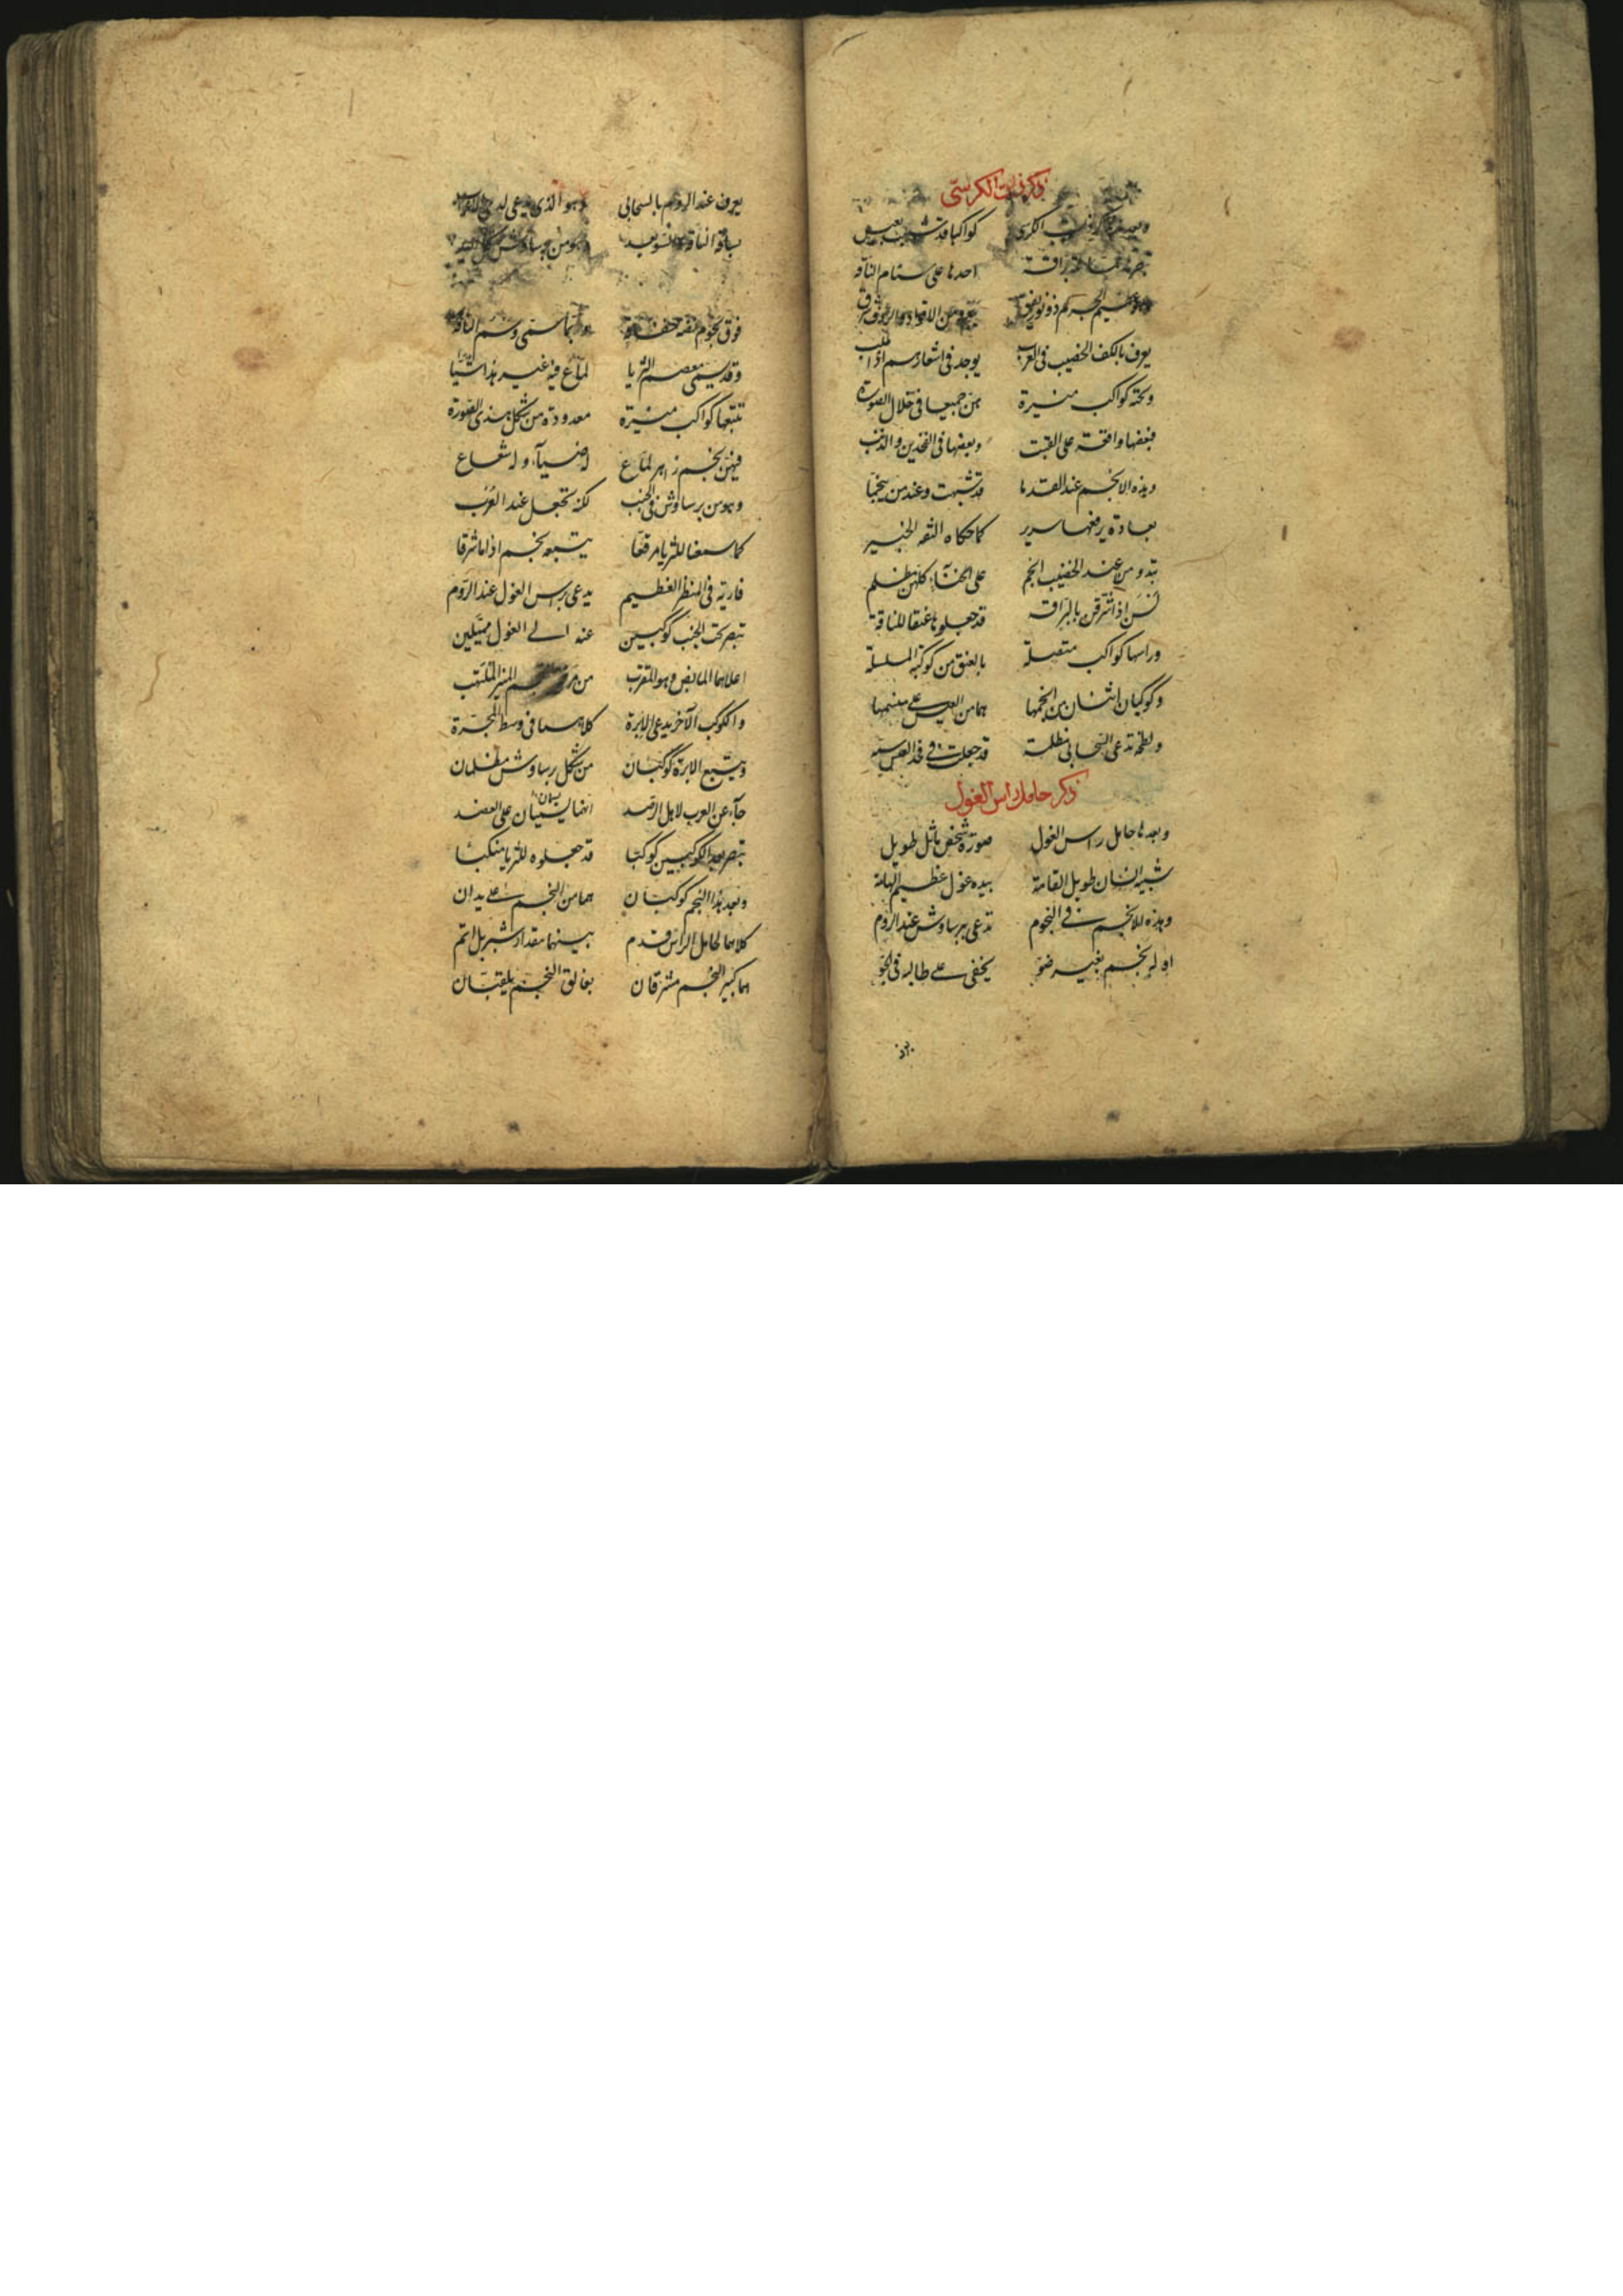 ذكر ذات الكرسى
كواكبا قد
احدها على سنام الناقه
يعرف بالكف الخضيب فى العرب يوجد فى اشعارهم اذا طلب
وتحته كواكب منيرة هن جميعا فى خلال الصورة
فبعضها واقعة على القتب وبعضها فى الفخذين والذنب
وهذه الانجم عند القدما قد شبهت وعند من
بعادة يرفعها سرير كما حكاه الثقه الخبير
تبدو من عند الخضيب انجم على انحناء كلهن مظلم
لسن اذ اشرقن بالبراقه قد جعلوها عنقا للناقة
وراسها كواكب متصلة بالعنق من كوكبة المسلسلة
وكوكبان اثنان من انجمها هما من العيس على منسمها
ولطخة تدعى السحابى مظلمة قد جعلت فى فخذ العيس سمه
ذكر حامل راس الغول
وبعدها حامل راس الغول صورة شخص ماثل طويل
شبيه انسان طويل القامة بيده غول عظيم الهامة
وهذه الانجم فى النجوم تدعى برساوش عند الروم
اوله نجم بغير ضو يخفى على طالبه فى الجو
يعرف عند الروم بالسحابى وهو الذى يدعى لدى
فوق نجوم وانما سمى وسم الناقة
وقد يسمى معصم الثريا لماع فيه غير هذا شيا
تتبعها كواكب منيرة معدودة من شكل هذى الصورة
فيهن نجم زاهر لماع له ضياء وله شعاع
وهو من برساوش فى الجنب لكنه تجعل عند العرب
كما سمعنا للثريا مرفقا يتبعه نجم اذا ما شرقا
فاريه فى المنظر العظيم يدعى براس الغول عند الروم
تبصر تحت الجنب كوكبين عنه الى الغول مميلين
اعلاهما المابض وهو المقرب من المنير الملتهب
والكوكب الآخر يدعى الابرة كلاهما فى وسط المجرة
ويتبع الابرة كوكبان من شكل برساوش مظلمان
جاء عن العرب لاهل الرصد انهما على العضد
تبصر بعد الكوكبين كوكبا قد جعلوه للثريا منكبا
وبعد هذا النجم كوكبان هما من النجم على يدان
كلاهما لحامل الراس قدم بينهما مقدار شبر بل اتم
هما كبير النجم مشرقان بعاتق النجم يلقبان